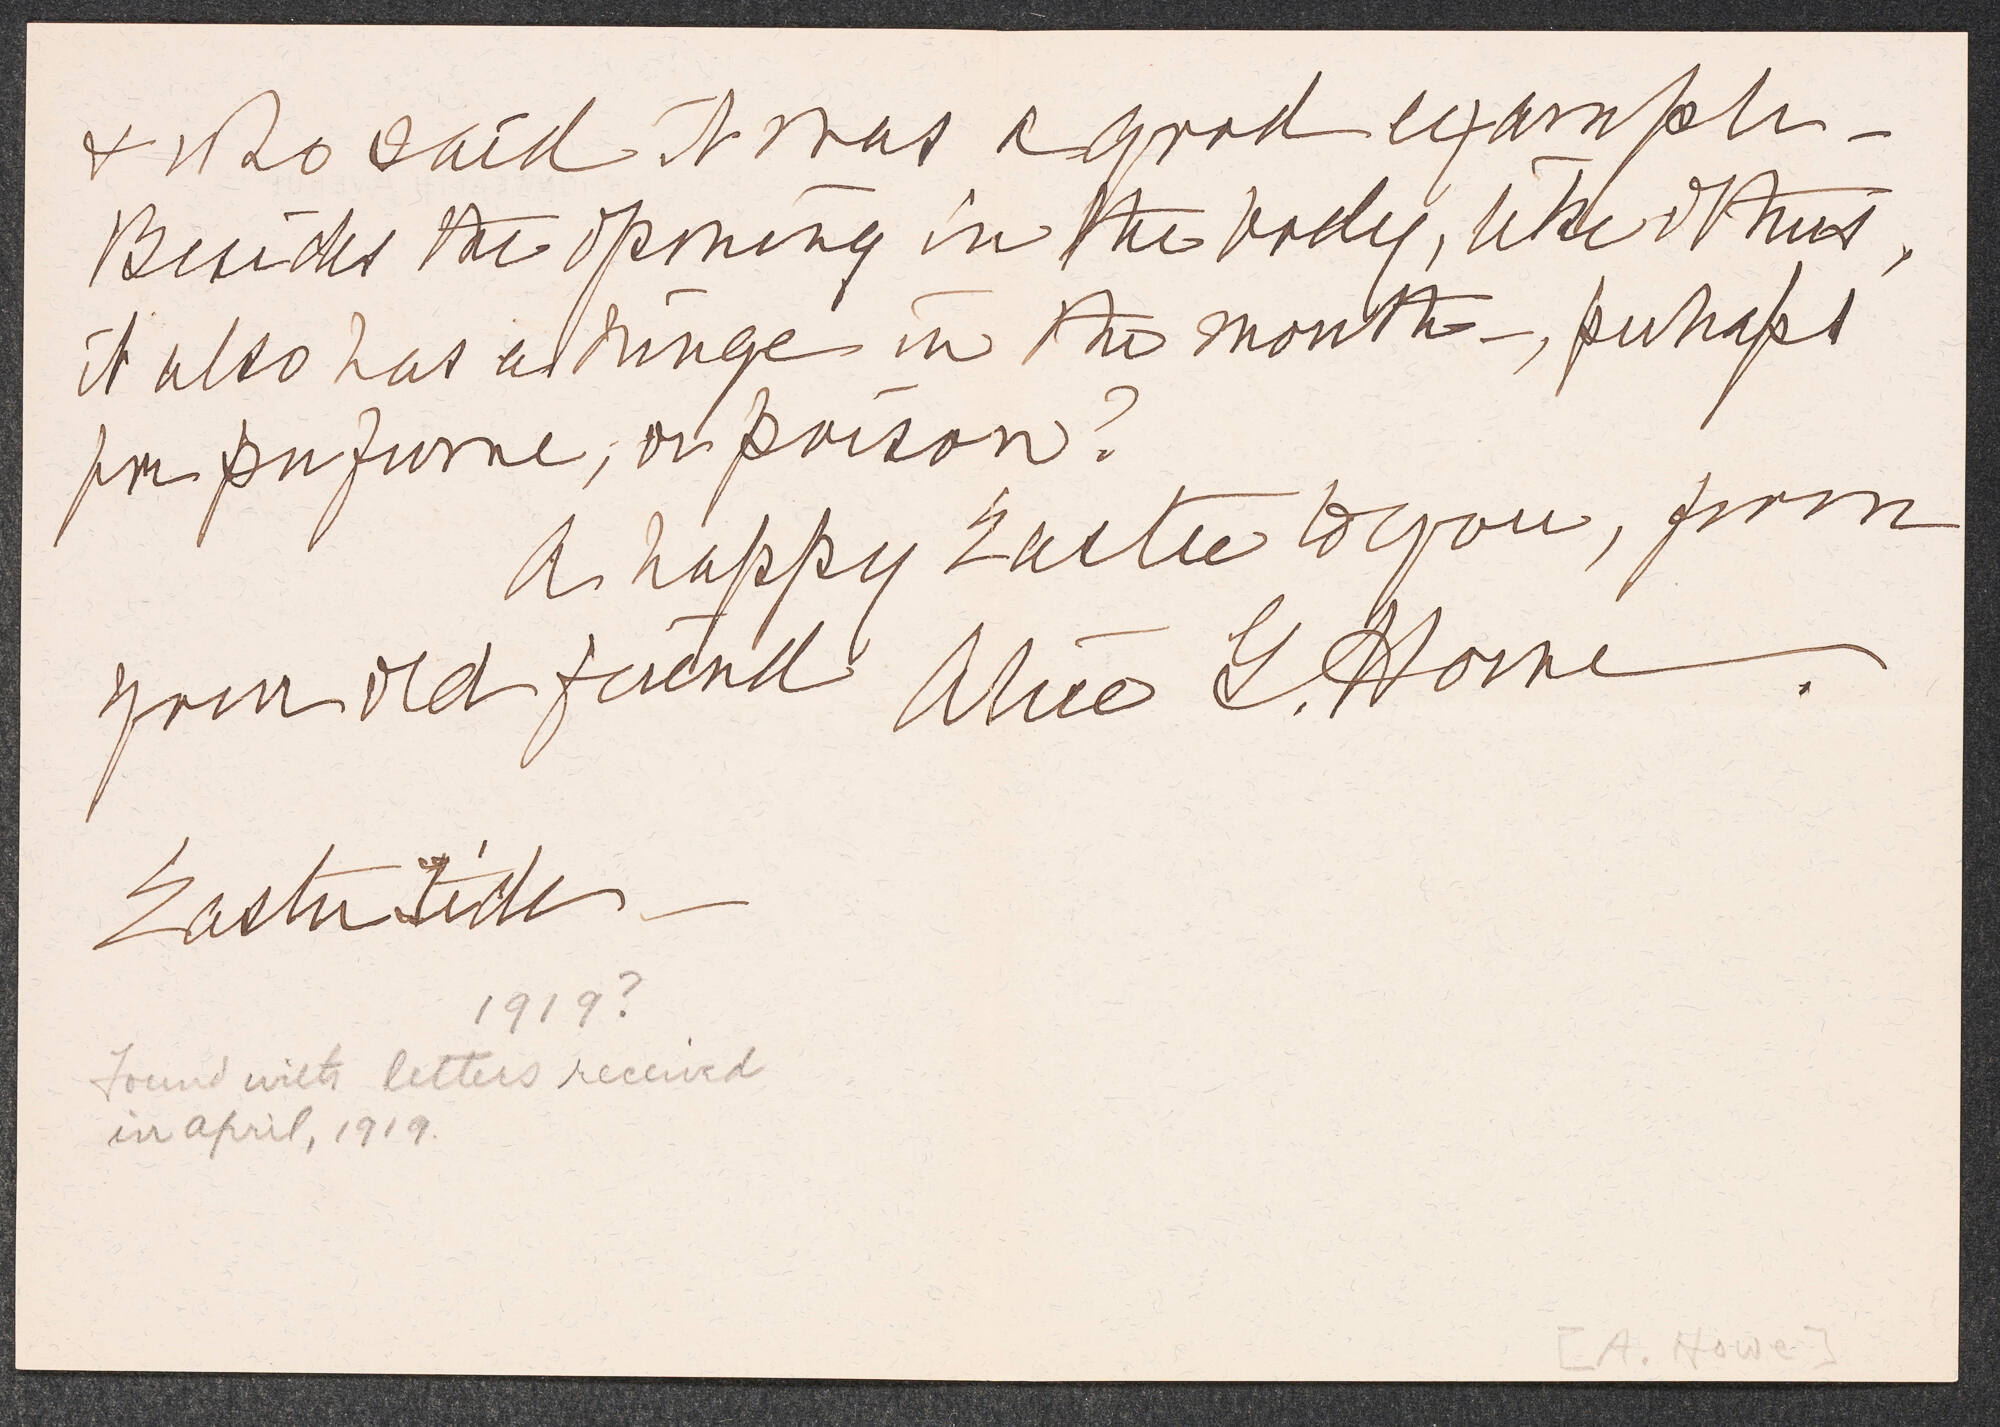 & who said it was a good example –
Besides the opening in the body, like others,
it also has a hinge in the mouth –, perhaps
for perfume, or poison?
A happy Easter to you, from
your old friend Alice G. Howe.
Easter Tide –
1919?
Found with letters received
in April, 1919.
[A. Howe]